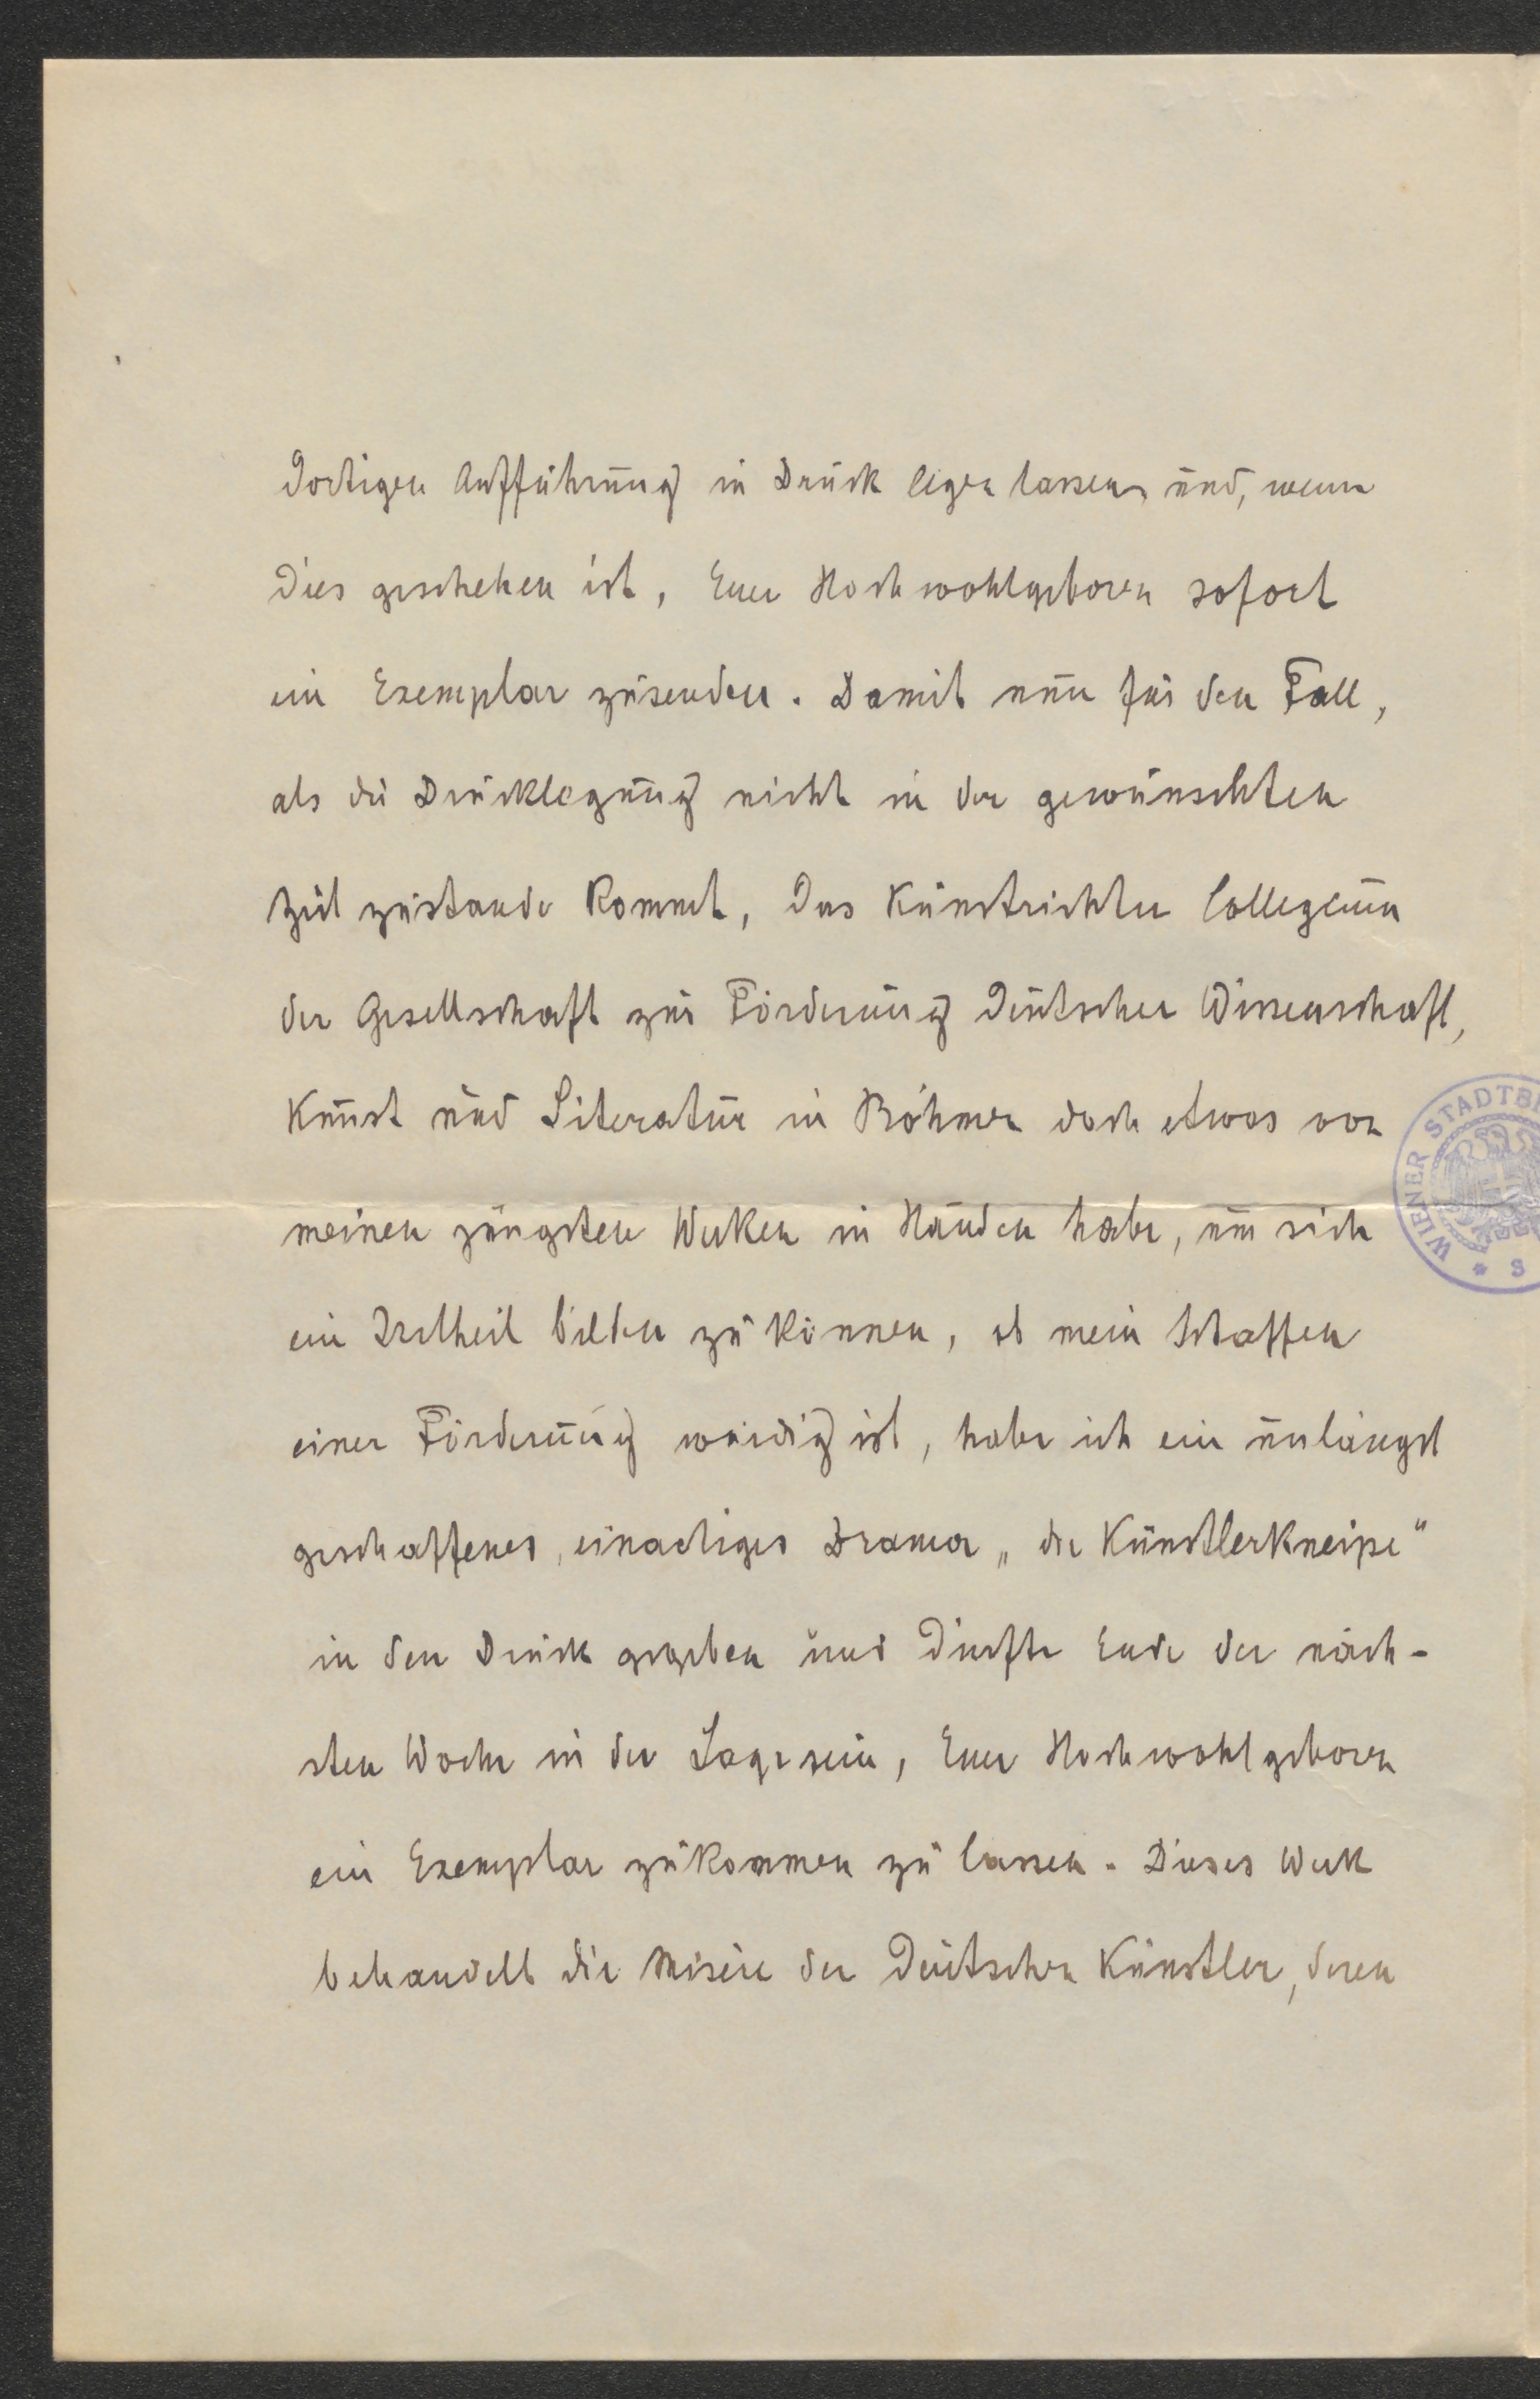 dortigen Aufführung in Druck legen lassen und, wenn
dies geschehen ist, Euer Hochwohlgeboren sofort
ein Exemplar zusenden. Damit nun für den Fall,
als die Drucklegung nicht in der gewünschten
Zeit zustande kommt, das Kunstrichter Collegium
der Gesellschaft zur Förderung deutscher Wissenschaft,
Kunst und Literatur in Böhmen doch etwas von
meinen jüngsten Werken in Händen habe, um sich
ein Urtheil bilden zu können, ob mein Schaffen
einer Förderung würdig ist, habe ich ein unlängst
geschaffenes, einactiges Drama „die Künstlerkneipe"
in den Druck gegeben und dürfte Ende der näch-
sten Woche in der Lage sein, Euer Hochwohlgeboren
ein Exemplar zukommen zu lassen. Dieses Werk
behandelt die Misère der deutschen Künstler, deren
WIENER STADTB